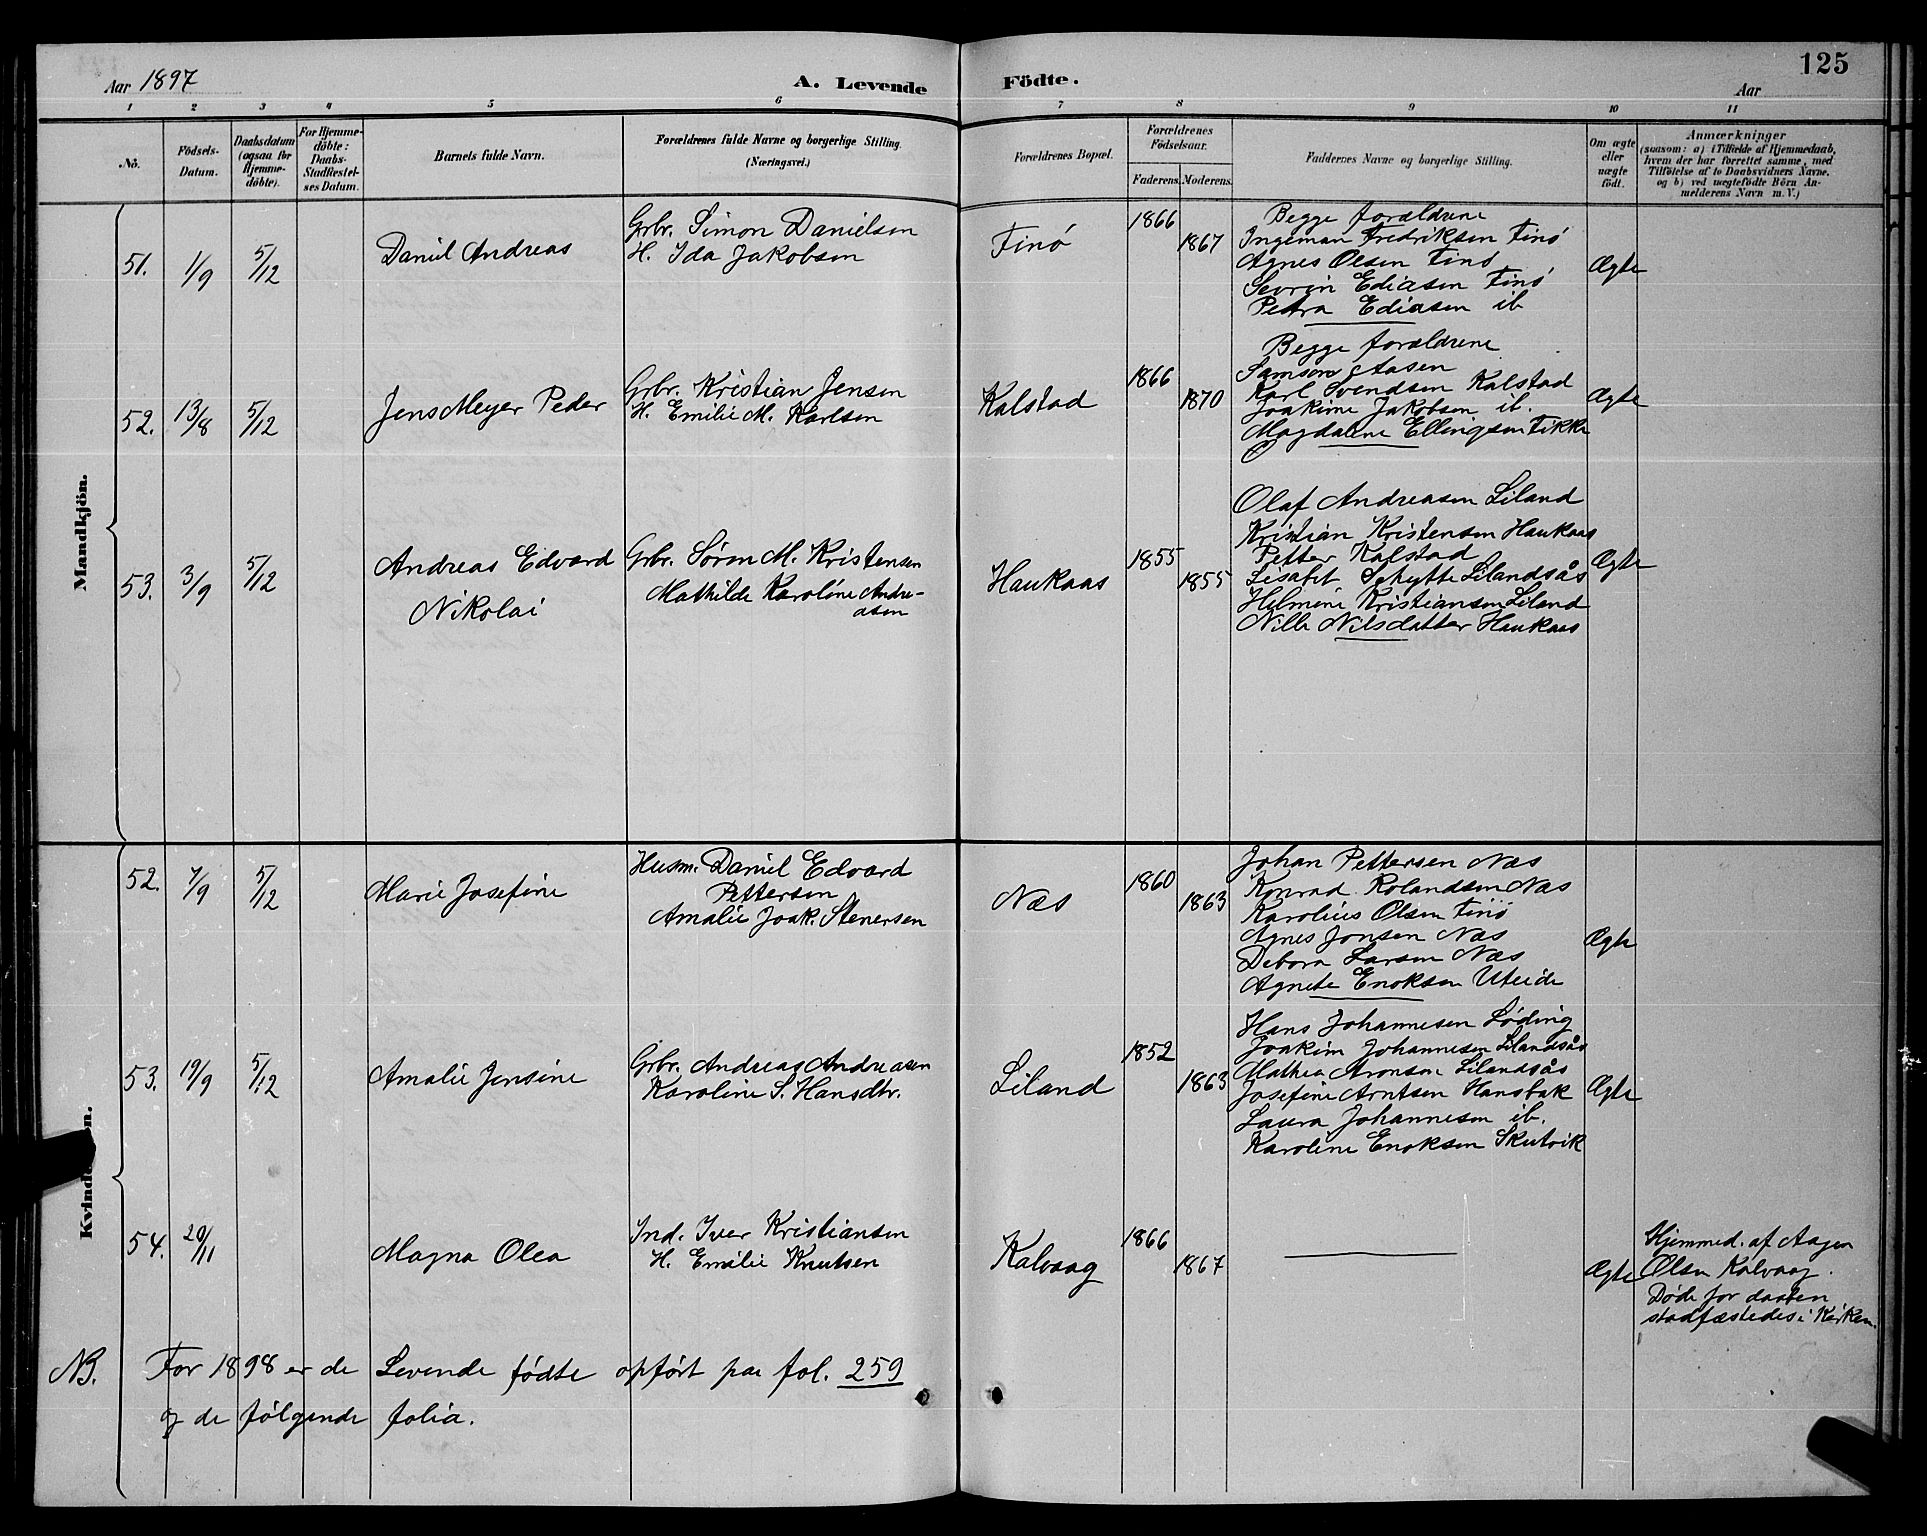 125
Aar 1897
A. Levende
Födte.
Aar
1 2 3 4 5 6 7 8 9 10 11
No.
Födsels-
Datum.
Daabsdatum
(ogsaa for
Hjemme-
döbte).
For Hjemme-
döbte:
Daabs-
Stadfæstel-
ses Datum.
Barnets fulde Navn.
Forældrenes fulde Navne og borgerlige Stilling.
(Næringsvei.)
Forældrenes Bopæl.
Forældrenes
Födselsaar.
Faderens. Moderens.
Faddernes Navne og borgerlige Stilling.
Om ægte
eller
uægte
født.
Anmærkninger
(saasom: a) i Tilfælde af Hjemmedaab,
hvem der har forrettet samme, med
Tilföielse af to Daabsvidners Navne.
og b) ved uægtefödte Börn An-
melderens Navn m. V.)
Mandkjön.
51. 1/9 5/12
Daniel Andreas
Grbr. Simon Danielsen
H. Ida Jakobsen
Finö
1866
1867
Begge forældrene
Ingeman Fredriksen Finö
Agnes Olsen Finö
Sevrin Ediasen Finö
Petra Ediasen ib
Ægte
52. 13/8 5/12
Jens Meyer Peder
Grbr. Kristian Jensen
H. Emilie M. Karlsen
Kalstad
1866
1870
Begge forældrene
Samson Aasen
Karl Svendsen Kalstad
Joakime Jakobsen ib.
Magdalene Ellingsen Fikke
Ægte
53. 3/9 5/12
Andreas Edvard
Nikolai
Grbr. Søren M. Kristensen
Mathilde Karoline Andre-
asen
Haukaas
1855
1855
Olaf Andreasen Liland
Kristian Kristensen Haukaas
Petter Kalstad
Lisabet Schytte Lilandsås
Helmine Kristiansen Liland
Nille Nilsdatter Haukaas
Ægte
Kvind
52. 7/9 5/12
Marie Josefine
Husm. Daniel Edvard
Pettersen
Amalie Joak. Stenersen
Næs
1860
1863
Johan Pettersen Næs
Konrad Rolandsen Næs
Karolius Olsen Finö
Agnes Jonsen Næs
Debora Larsen Næs
Agnete Enoksen Uteide
Ægte
53. 19/9 5/12
Amalie Jensine
Grbr. Andreas Andreasen
Karoline S. Hansdtr.
Liland
1852
1863
Hans Johannesen Løding
Joakim Johannesen Lilandsås
Mathea Aronsen Lilandsås
Josefine Arntsen Hansbak
Laura Johannesen ib.
Karoline Enoksen Skutvik
Ægte
54. 20/11
Magna Olea
Ind. Iver Kristiansen
H. Emilie Knutsen
Kalvaag
1866
1867
Ægte
Hjemmed. af Aagen
Olsen Kalvaag.
Døde før daaben
stadfæstedes i Kirken.
NB. For 1898 er de Levende fødte opført paa fol. 259
og de følgende folia.